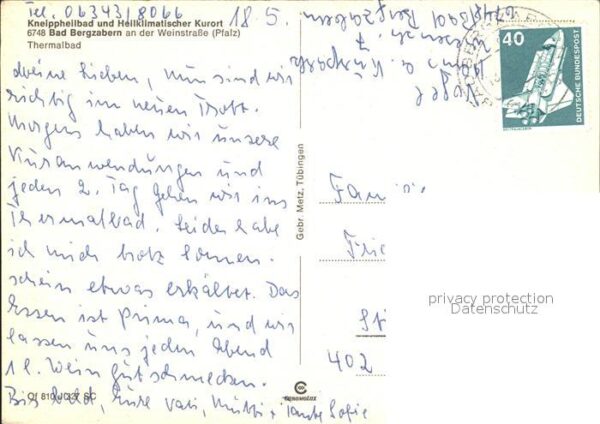 Tel. 06343/8066 18.5.
Kneippheilbad und Heilklimatischer Kurort
6748 Bad Bergzabern an der Weinstraße (Pfalz)
Thermalbad
6748 Bad Bergzabern
40
DEUTSCHE BUNDESPOST
Meine Lieben, nun sind wir
richtig im neuen Trott.
Morgens haben wir unsere
Kuranwendungen und
jeden 2. Tag gehen wir ins
Thermalbad. Leider habe
ich mich trotz Sonnen-
schein etwas erkältet. Das
Essen ist prima, und wir
lassen uns jeden Abend
1 l. Wein gut schmecken.
Bis bald, Eure Vati, Mutti + Tante Sofie
Gebr. Metz, Tübingen
Fam
Frie
St
402
privacy protection
Datenschutz
CHROMOLUX